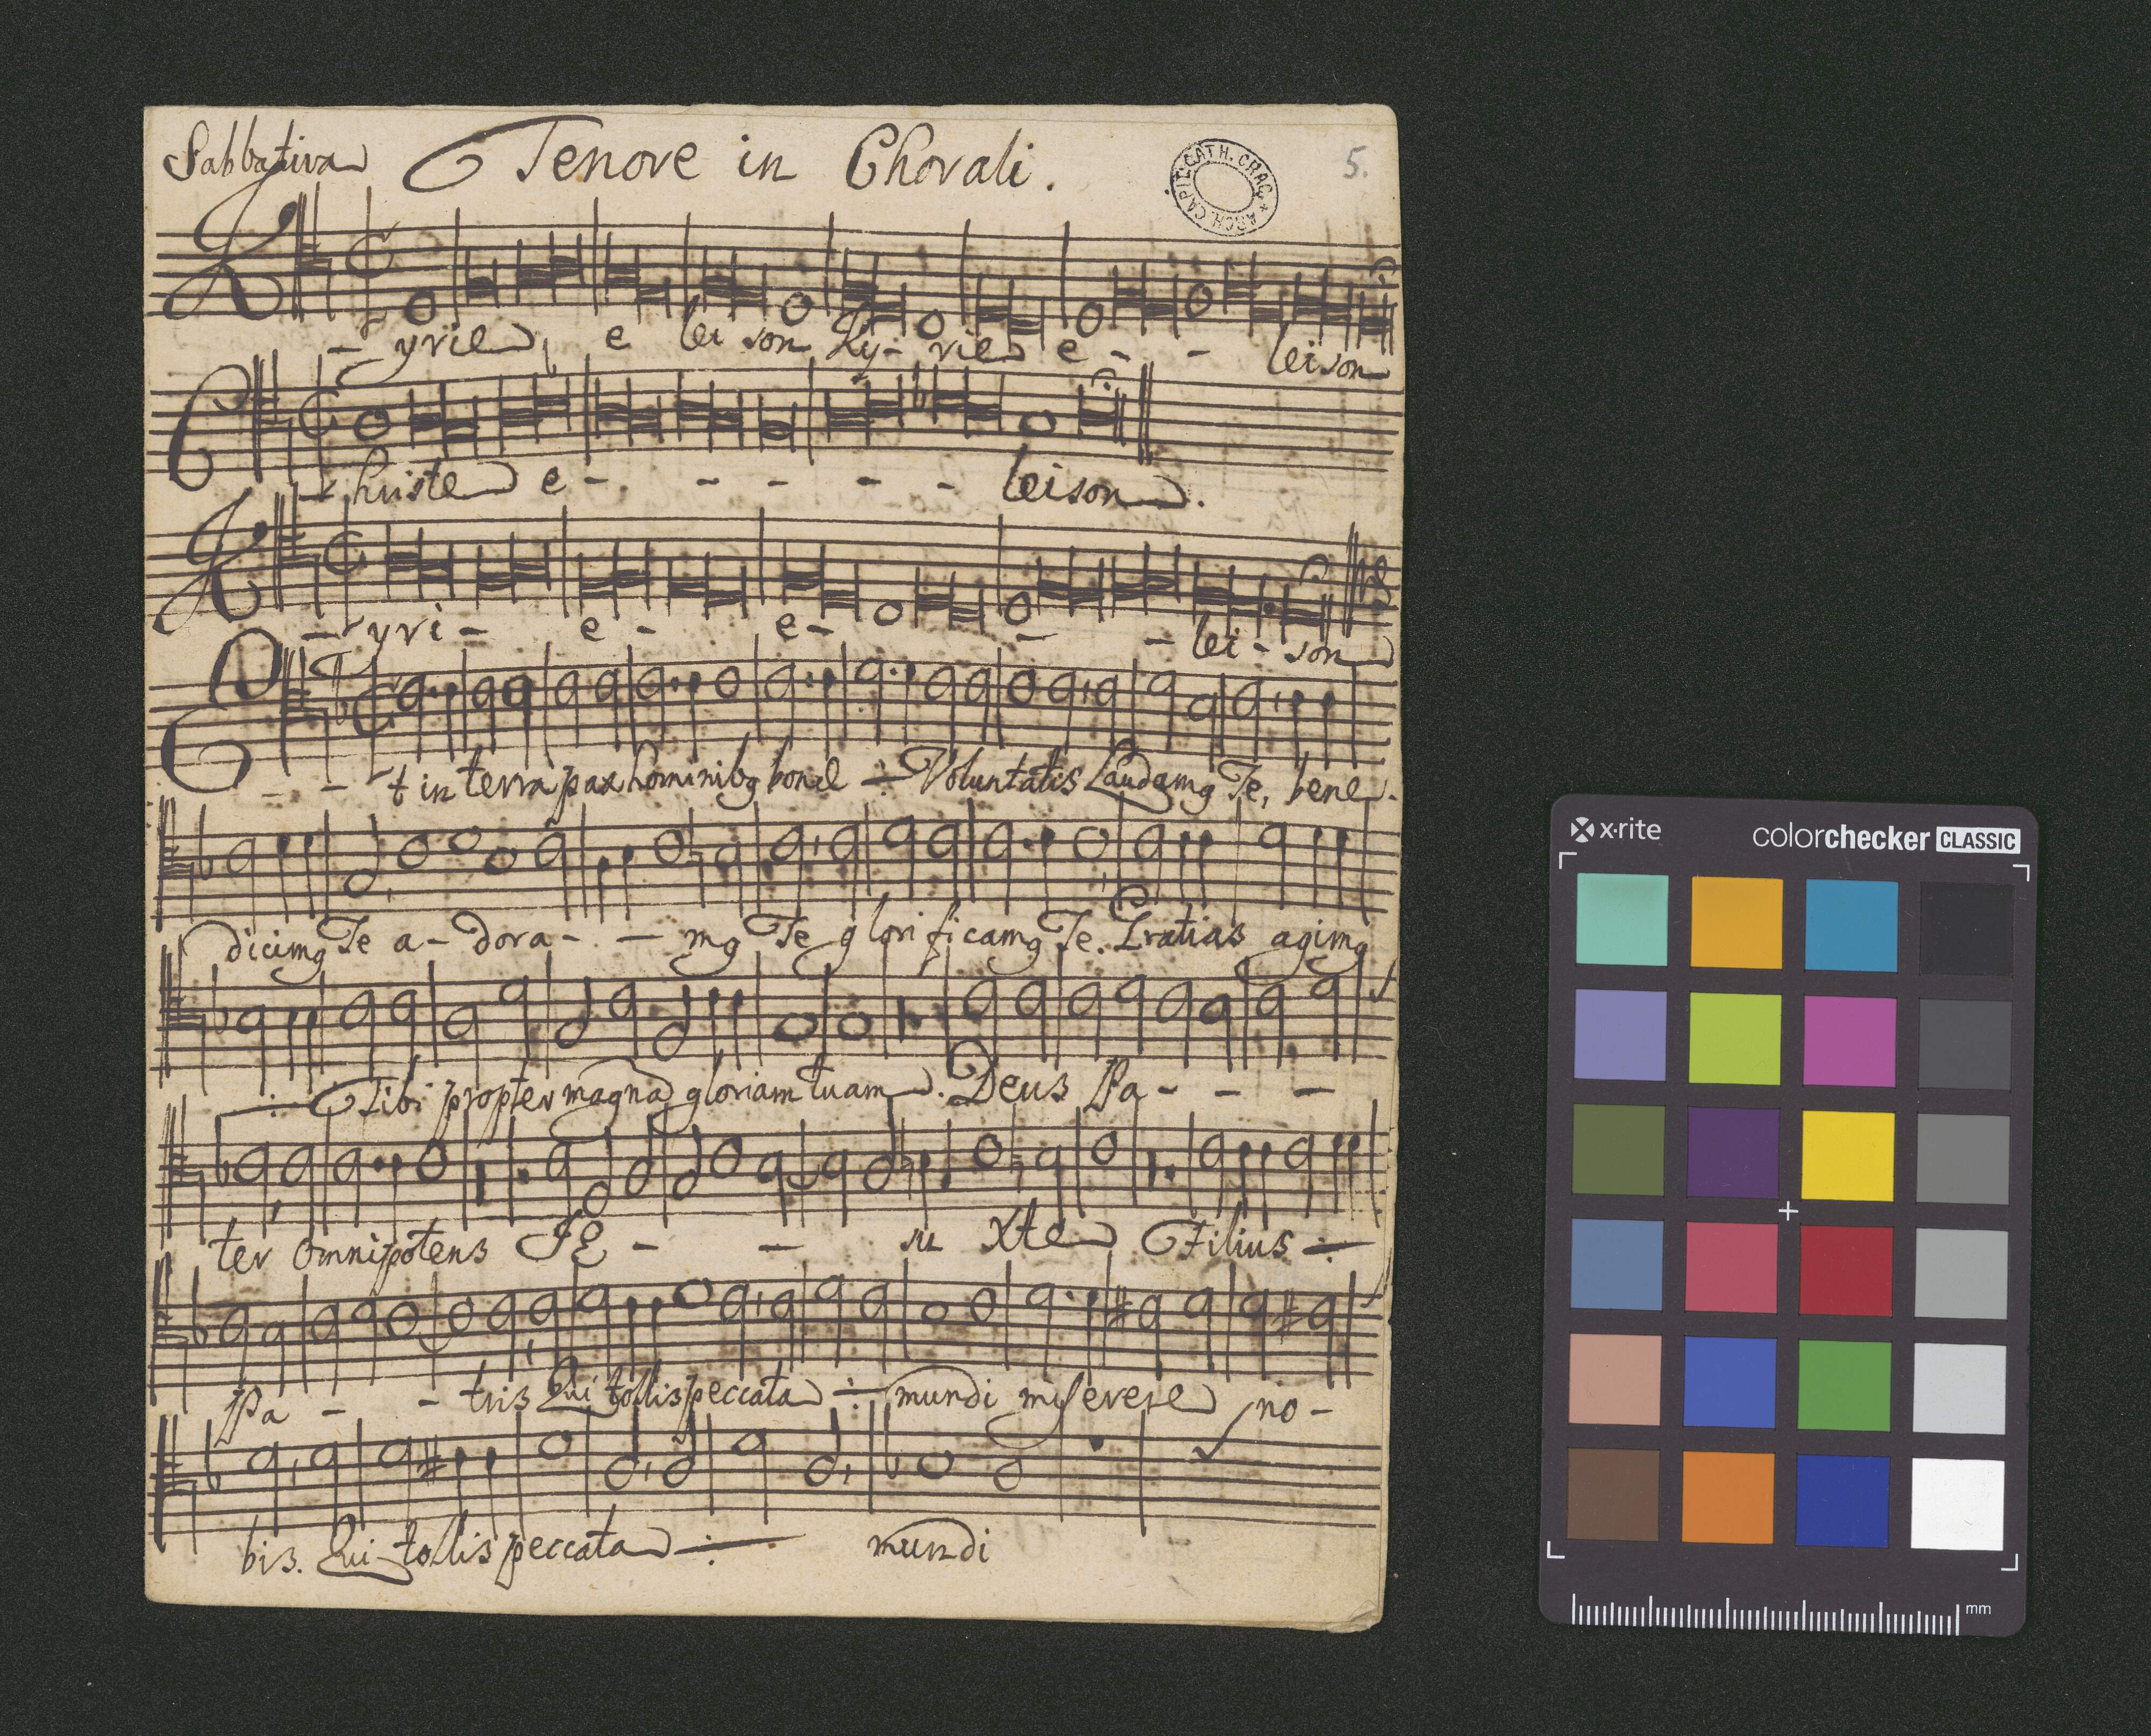 Sabbativa Tenore in Chorali.
ARCH. CAPIT. CATH. CRAC. *
5.
K - yrie e lei son Ky - rie e - - leison
C - hriste e - - - - - leison.
K - yri - e - e - - - lei - son
E - - t in terra pax hominibq bone ÷ Voluntatis Laudamq Te, bene -
dicimq Te a - dora - - mq Te glorificamq Te. Gratias agimq
÷ Tibi propter magna gloriam tuam. Deus Pa - - -
ter omnipotens JE - - su Xte Filius ÷
Pa - - tris Qui tollis peccata ÷ mundi miserere no -
bis. Qui tollis peccata ÷ mundi
x·rite
colorchecker CLASSIC
mm